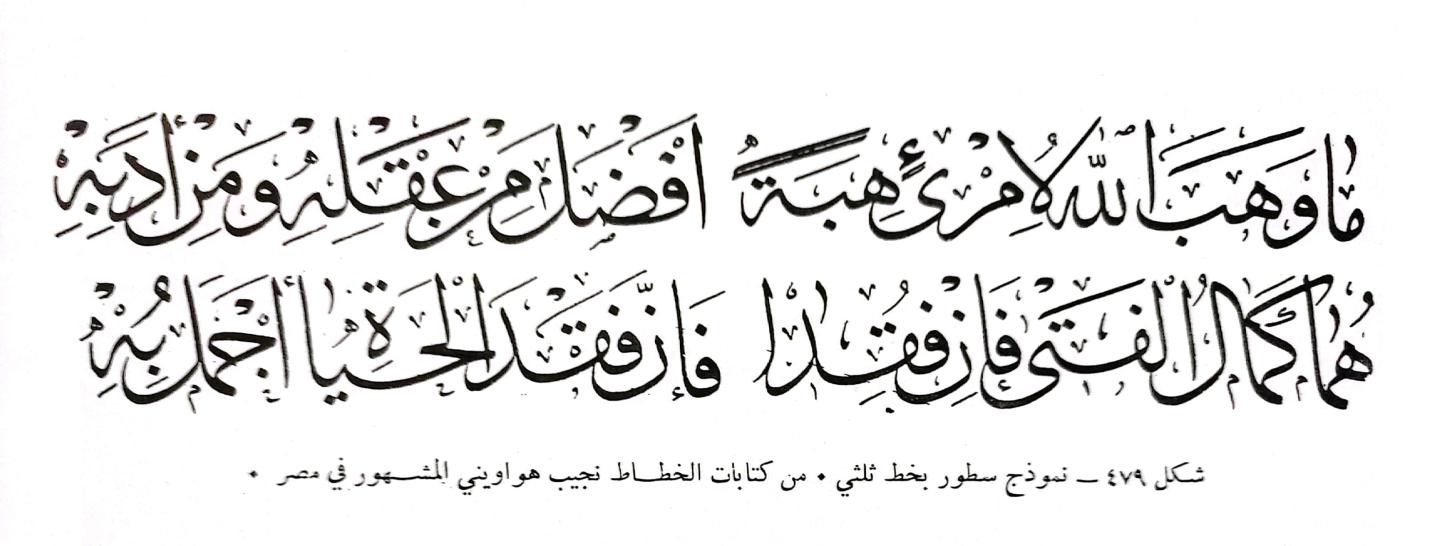 مَا وَهَبَ اللهُ لِامْرِئٍ هِبَةً أَفْضَلَ مِنْ عَقْلِهِ وَمِنْ أَدَبِهِ
هُمَا كَمَالُ الْفَتَى فَإِنْ فُقِدَا فَإِنَّ فَقْدَ الْحَيَاةِ أَجْمَلُ بِهِ
شكل ٤٧٩ ــ نموذج سطور بخط ثلثي ٠ من كتابات الخطاط نجيب هواويني المشهور في مصر ٠